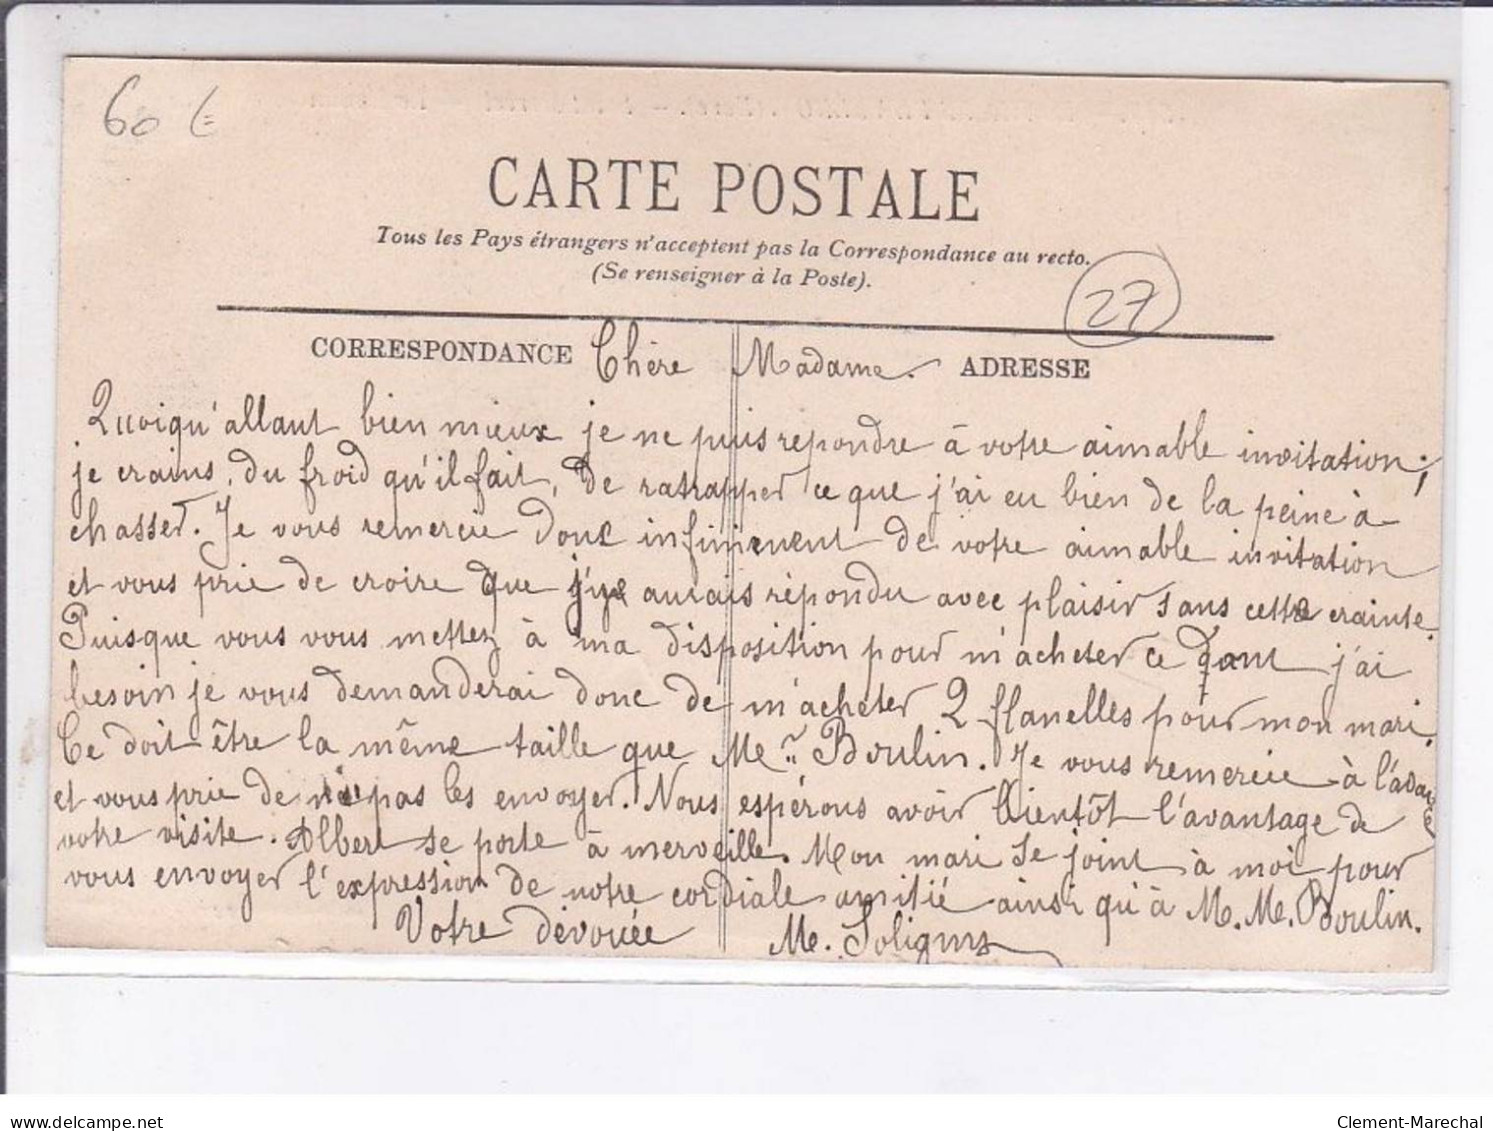 60 €
CARTE POSTALE
Tous les Pays étrangers n'acceptent pas la Correspondance au recto.
(Se renseigner à la Poste).
27
CORRESPONDANCE Chère Madame. ADRESSE
Quoiqu'allant bien mieux je ne puis répondre à votre aimable invitation;
je crains, du froid qu'il fait, de ratrapper ce que j'ai eu bien de la peine à
chasser. Je vous remercie donc infiniment de votre aimable invitation
et vous prie de croire que j'y aurais répondu avec plaisir sans cette crainte.
Puisque vous vous mettez à ma disposition pour m'acheter ce dont j'ai
besoin je vous demanderai donc de m'acheter 2 flanelles pour mon mari.
Ce doit être la même taille que Mr Boulin. Je vous remercie à l'avance
et vous prie de pas les envoyer. Nous espérons avoir bientôt l'avantage de
votre visite. Albert se porte à merveille. Mon mari se joint à moi pour
vous envoyer l'expression de notre cordiale amitié ainsi qu'à M. Me. Boulin.
Votre dévouée Me.
delcampe.net
Clement-Marechal